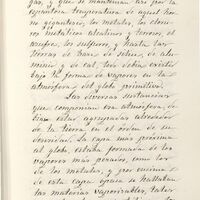 gas, y que se mantenían así por la
espantosa temperatura de aquel hor-
no gigantesco; los metales, los cloru-
ros metálicos alcalinos y térreos, el
azufre, los sulfuros, y hasta las
tierras de base de silice, de alumi-
nio y de cal, todo debía existir
bajo la forma de vapores en la
atmósfera del globo primitivo.
Las diversas sustancias
que componían esa atmósfera de-
bían estar agrupadas alrededor
de la tierra en el orden de su
densidad. La capa mas próxima
al globo, estaba formada de los
vapores más pesados, como los
de los metales, y por encima
de esta capa opaca se hallaban
las materias vaporizables, tales